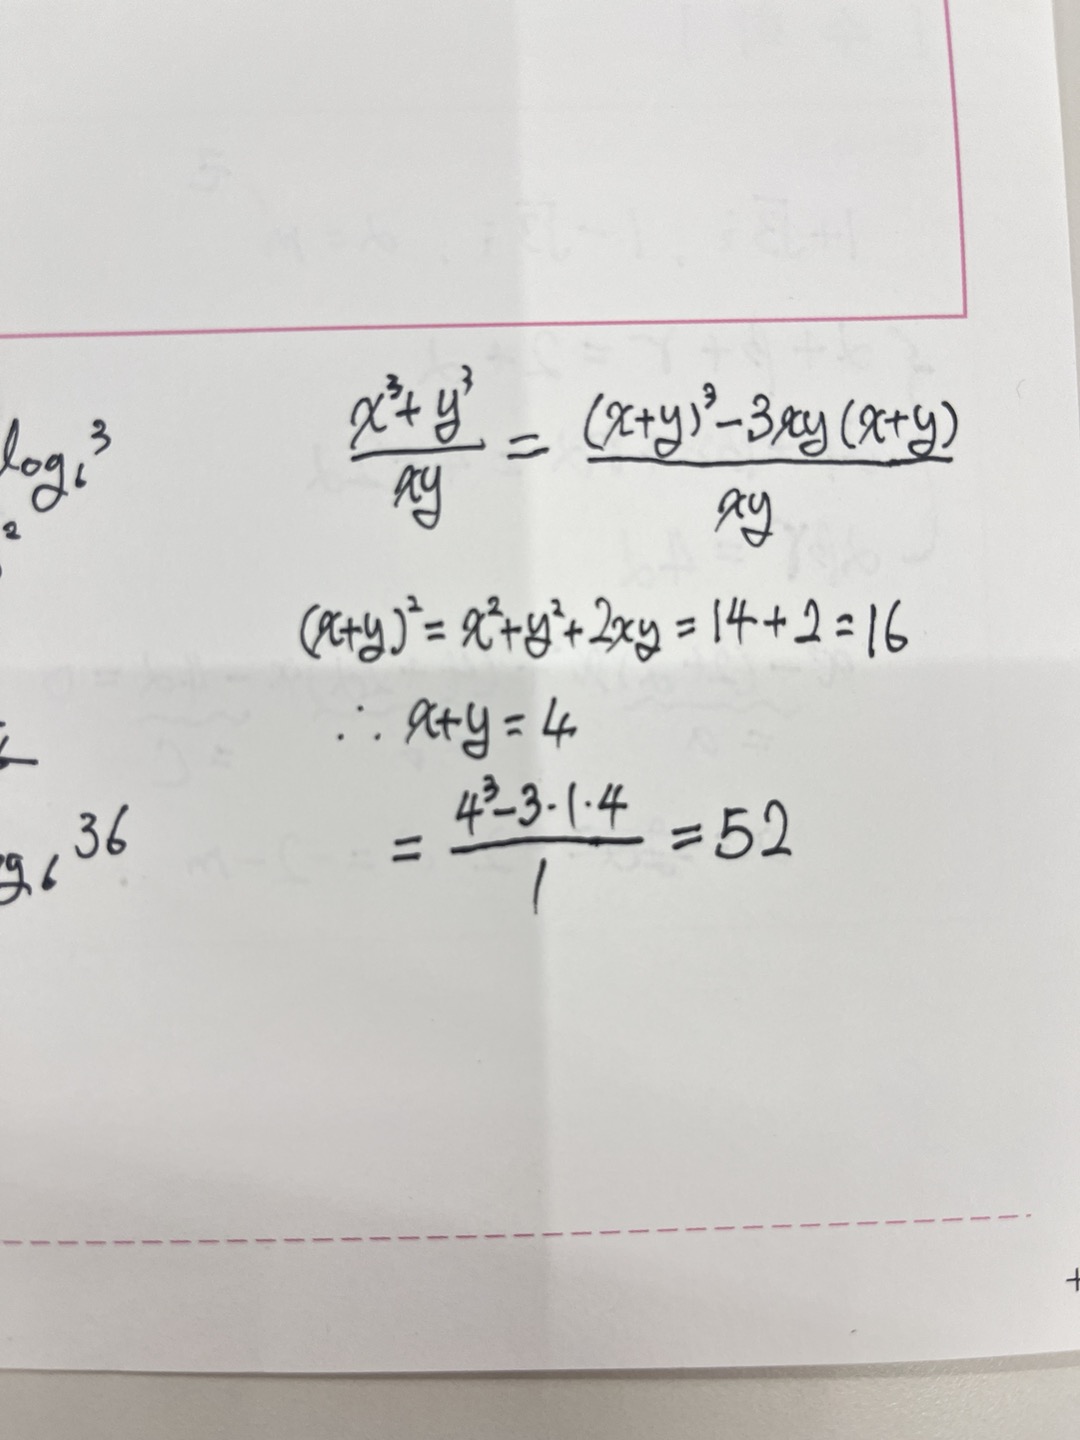 log₆3
2
36
g₆
(x³+y³)/(xy) = ((x+y)³-3xy(x+y))/(xy)
(x+y)² = x²+y²+2xy = 14+2 = 16
∴ x+y = 4
= (4³-3·1·4)/1 = 52
+